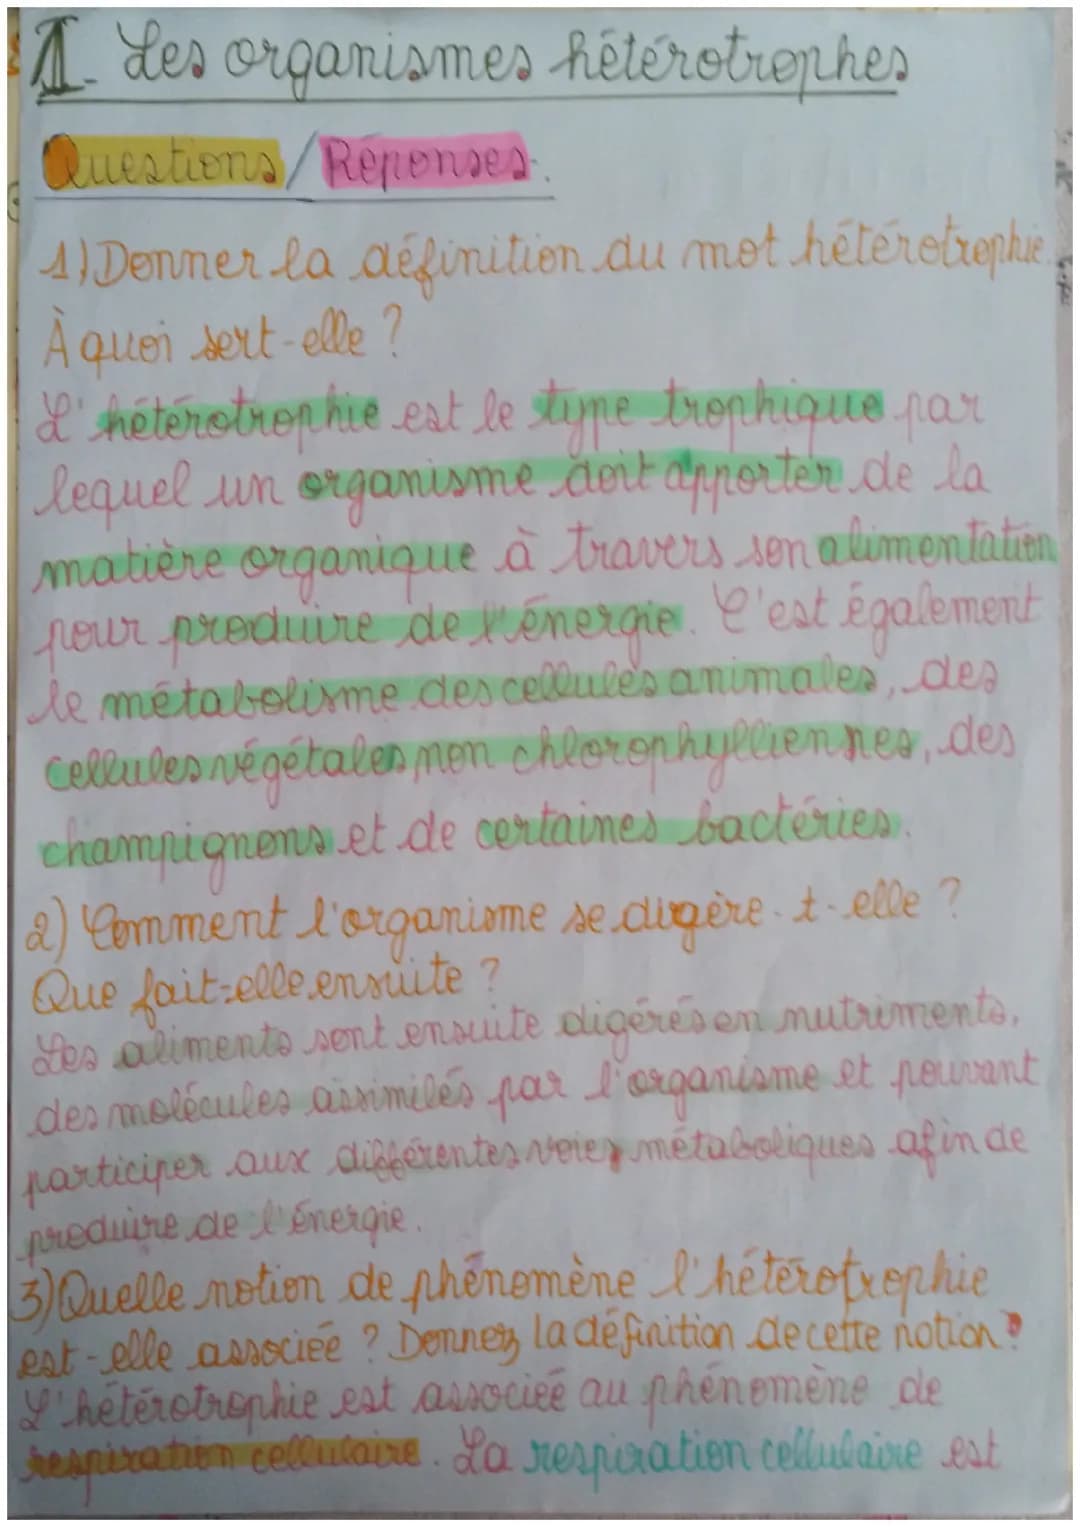 II. Les organismes hétérotrophes
Questions/Réponses:
1) Donner la définition du mot hétérotrophie.
À quoi sert-elle ?
L'hétérotrophie est le type trophique par
lequel un organisme doit apporter de la
matière organique à travers son alimentation
pour produire de l'énergie. C'est également
le métabolisme des cellules animales, des
cellules végétales non chlorophylliennes, des
champignons et de certaines bactéries.
2) Comment l'organisme se digère-t-elle ?
Que fait-elle ensuite ?
Les aliments sont ensuite digérés en nutriments,
des molécules assimilés par l'organisme et pouvant
participer aux différentes voies métaboliques afin de
produire de l'énergie.
3) Quelle notion de phénomène l'hétérotrophie
est-elle associée ? Donnez la définition de cette notion ?
L'hétérotrophie est associée au phénomène de
respiration cellulaire. La respiration cellulaire est